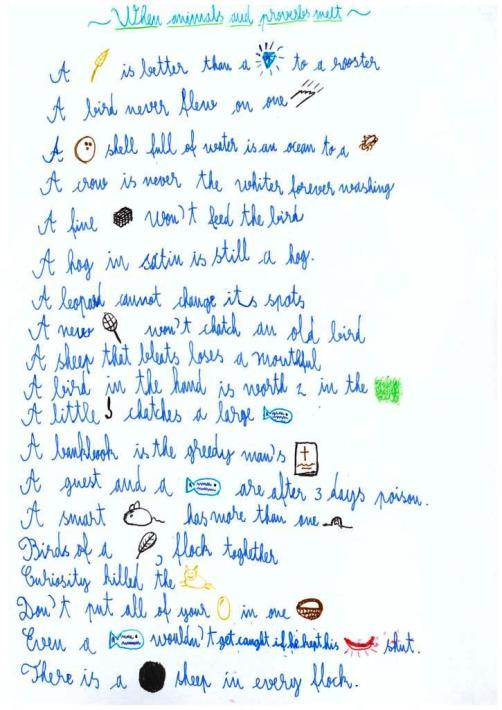 ~ When animals and proverbs melt ~
A is better than a to a rooster
A bird never flew on one
A shell full of water is an ocean to a
A crow is never the whiter forever washing
A fine won't feed the bird
A hog in satin is still a hog.
A leopard cannot change its spots
A new won't chatch an old bird
A sheep that bleats loses a mouthful
A bird in the hand is worth 2 in the
A little chatches a large
A bankbook is the greedy man's
A guest and a are after 3 days poison.
A smart has more than one
Birds of a , flock toghether
Curiosity killed the
Don't put all of your in one
Even a wouldn't get caught if he kept his shut.
There is a sheep in every flock.